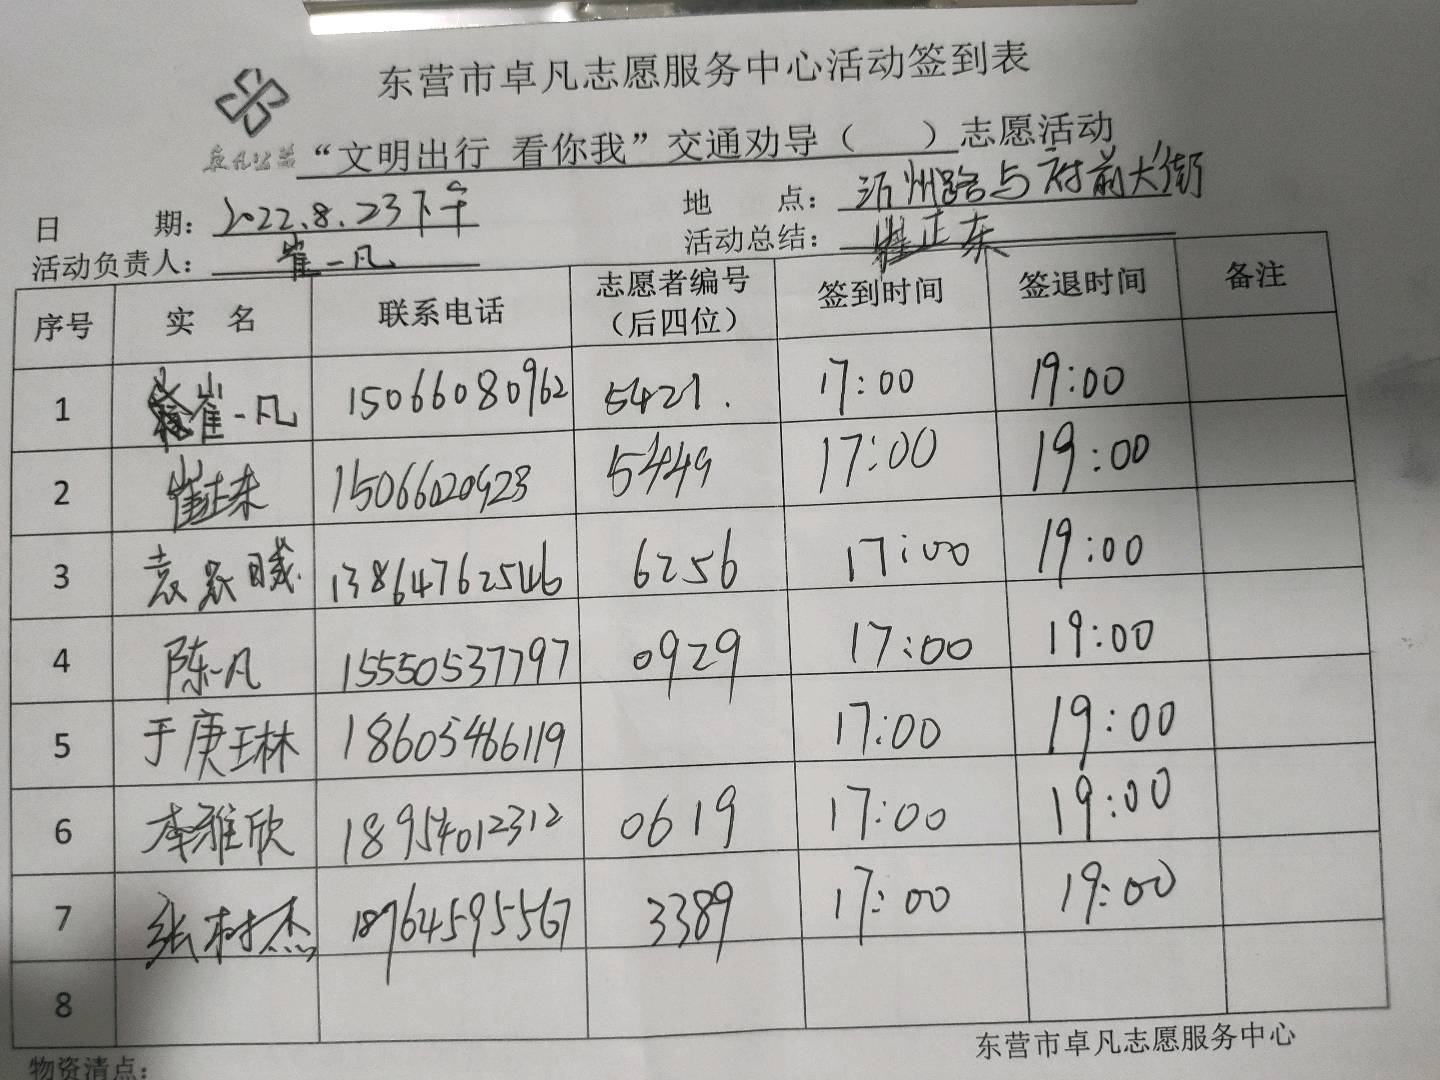 东营市卓凡志愿服务中心活动签到表
卓凡公益
“文明出行 看你我”交通劝导（ ）志愿活动
日 期：2022.8.23下午 地 点：沂州路与府前大街
活动负责人：崔一凡 活动总结：崔正东
序号 实 名 联系电话 志愿者编号（后四位） 签到时间 签退时间 备注
1 崔一凡 15066080962 5421. 17:00 19:00
2 崔 15066020923 5449 17:00 19:00
3 袁 13864762546 6256 17:00 19:00
4 陈一凡 15550537797 0929 17:00 19:00
5 于庚琳 18605466119 17:00 19:00
6 李雅欣 18954012312 0619 17:00 19:00
7 张树杰 18764595567 3389 17:00 19:00
8
东营市卓凡志愿服务中心
物资清点：